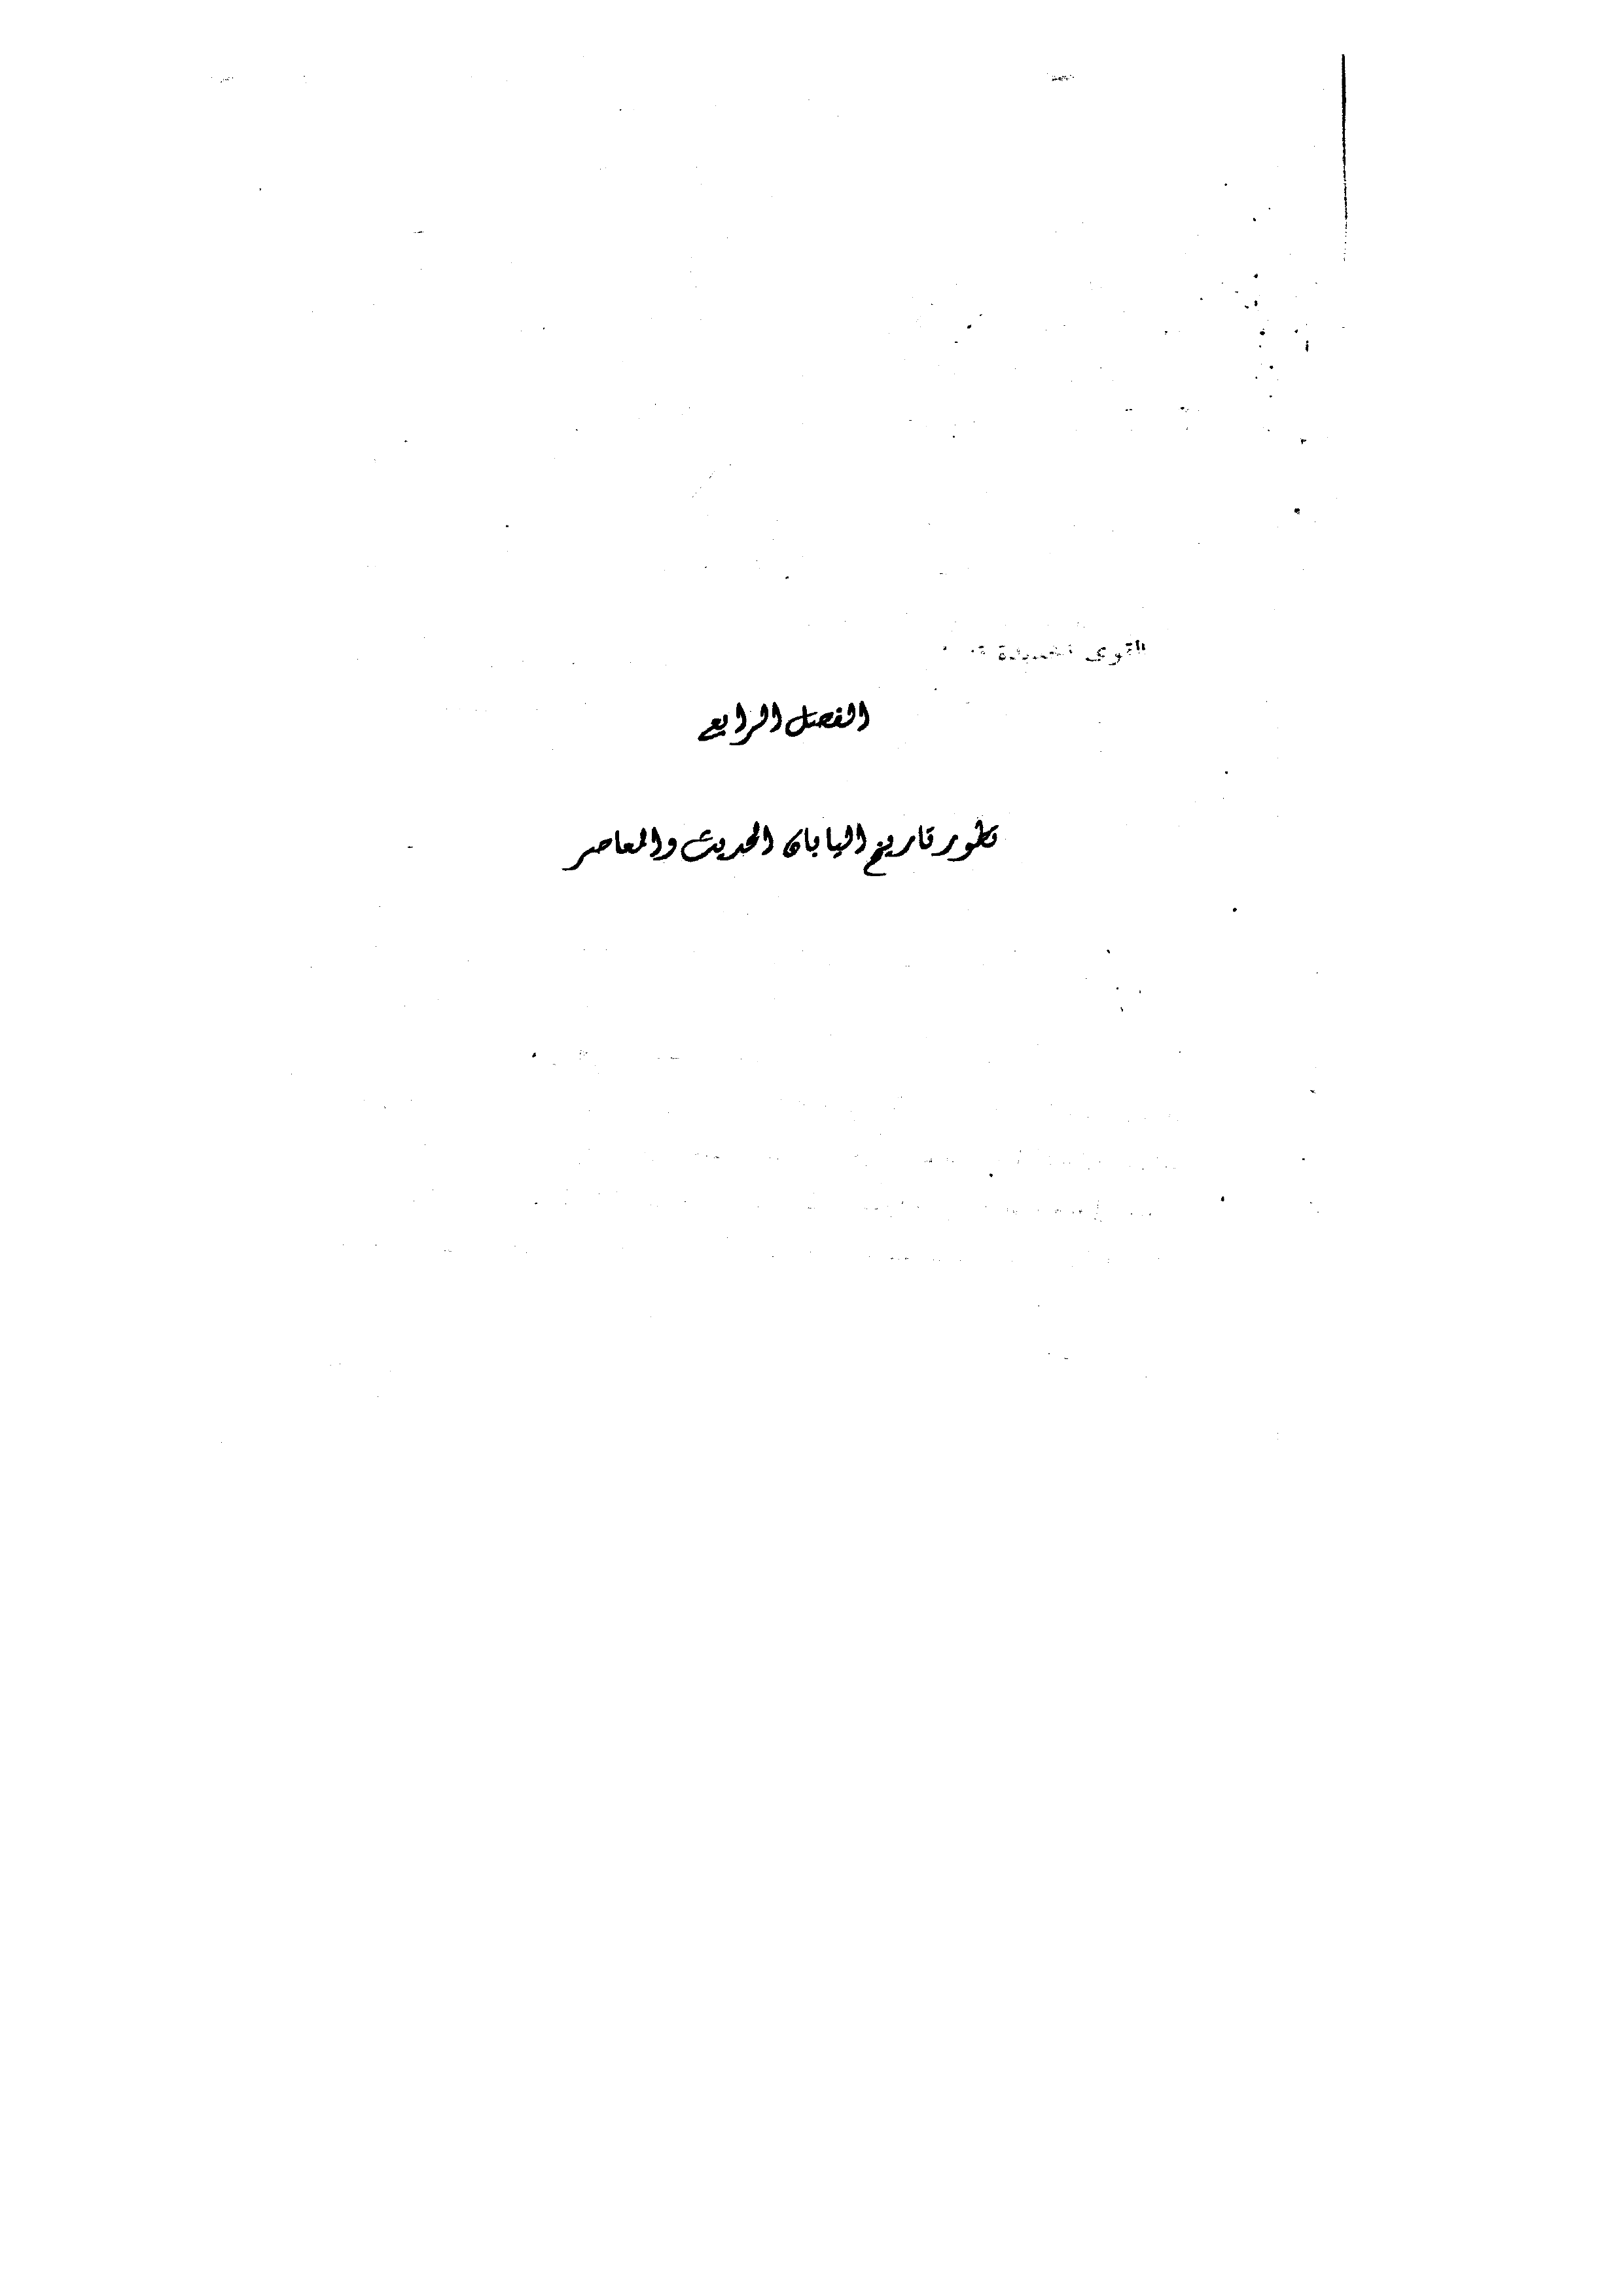 الفصل الرابع
تطور تاريخ اليابان الحديث والمعاصر